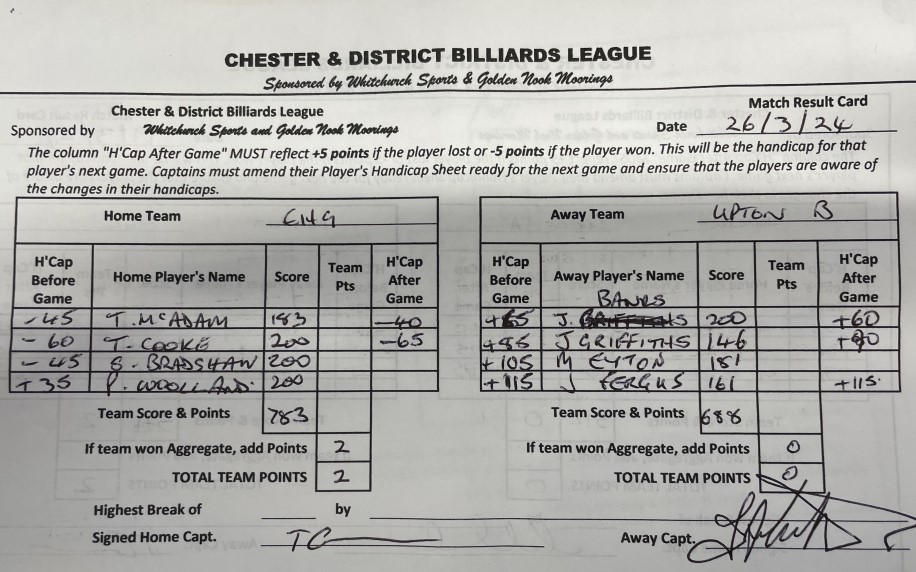 CHESTER & DISTRICT BILLIARDS LEAGUE
Sponsored by Whitchurch Sports & Golden Nook Moorings
Match Result Card
Chester & District Billiards League
Sponsored by Whitchurch Sports and Golden Nook Moorings Date 26/3/24
The column "H'Cap After Game" MUST reflect +5 points if the player lost or -5 points if the player won. This will be the handicap for that
player's next game. Captains must amend their Player's Handicap Sheet ready for the next game and ensure that the players are aware of
the changes in their handicaps.
Home Team CNG
H'Cap Before Game Home Player's Name Score Team Pts H'Cap After Game
-45 T. McADAM 183 -40
-60 T. COOKE 200 -65
-45 S. BRADSHAW 200
+35 P. WOOLLAND. 200
Team Score & Points 783
If team won Aggregate, add Points 2
TOTAL TEAM POINTS 2
Highest Break of by
Signed Home Capt. TC
Away Team UPTON B
H'Cap Before Game Away Player's Name Score Team Pts H'Cap After Game
+65 J. BANKS 200 +60
+85 J GRIFFITHS 146 +90
+105 M EYTON 181
+115 J FERGUS 161 +115.
Team Score & Points 688
If team won Aggregate, add Points 0
TOTAL TEAM POINTS 0
Away Capt.